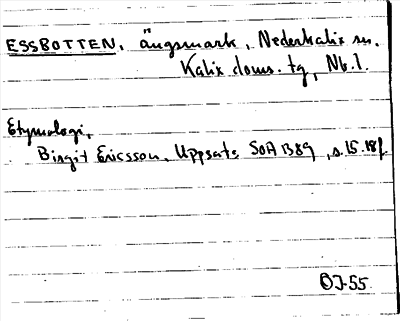 ESSBOTTEN, ängsmark, Nederkalix sn.
Kalix doms. tg, Nb. l.
Etymologi,
Birgit Ericsson, Uppsats SOA B89, s. 15. 18f.
OJ-55